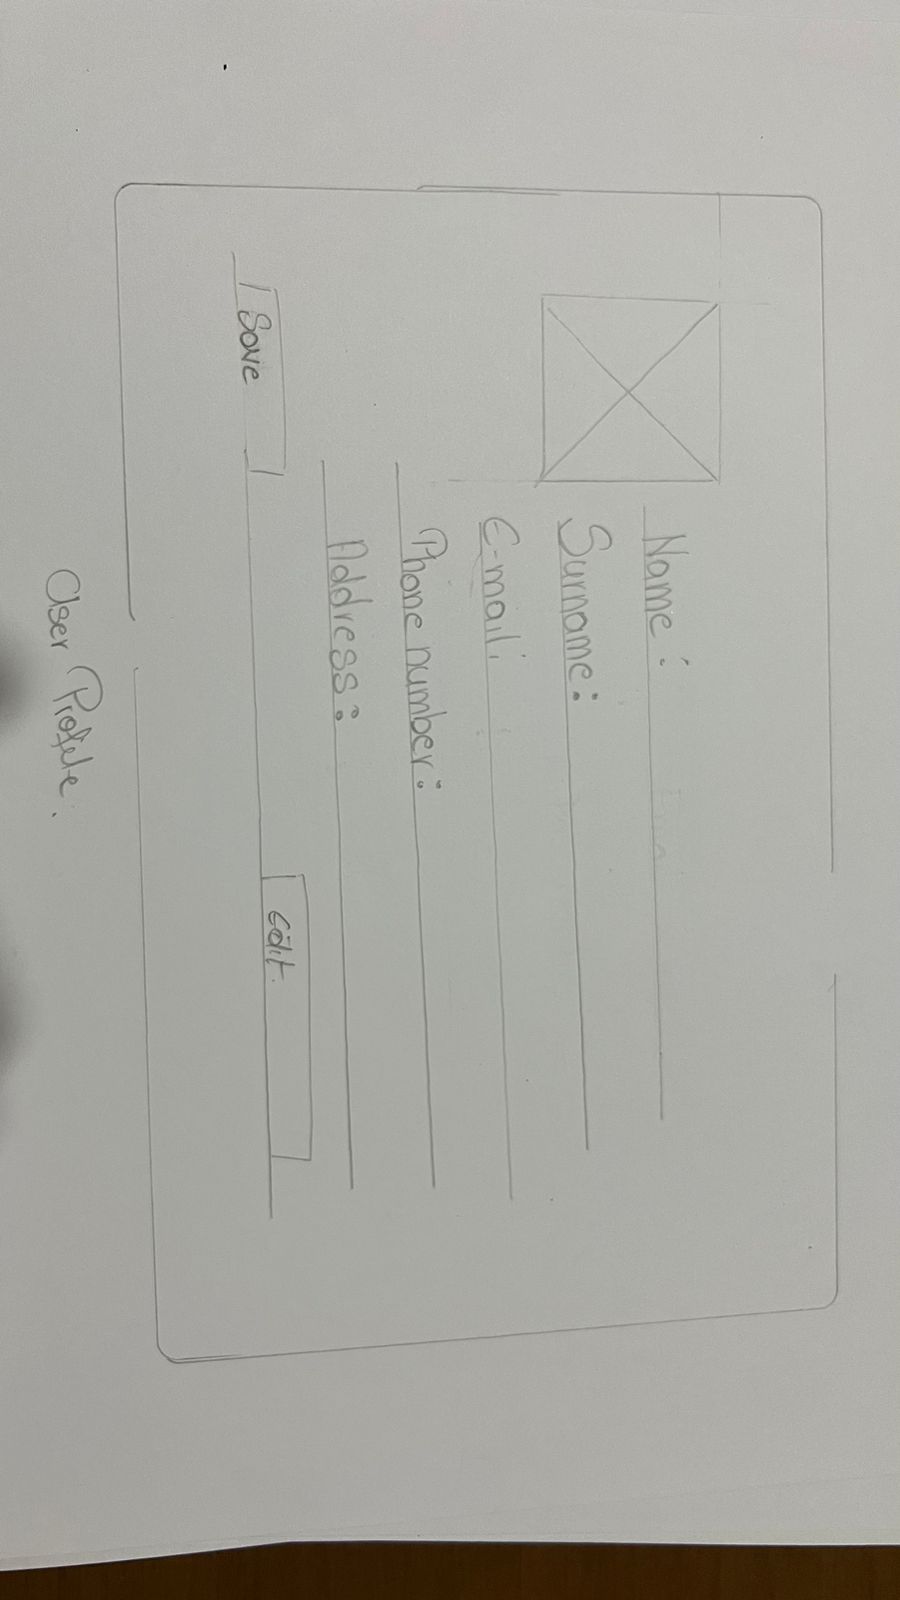 Name :
Surname :
E-mail :
Phone number :
Address :
Save
edit.
User Profile.